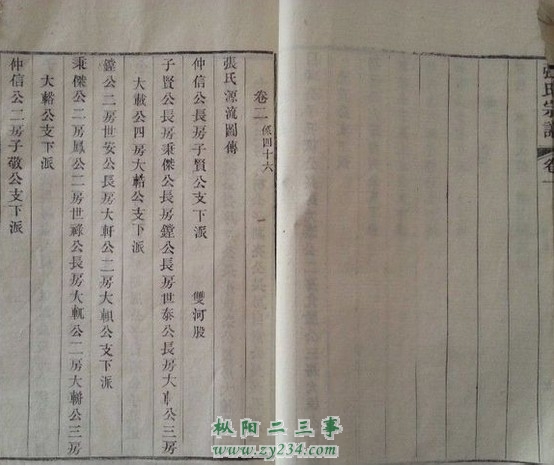 張氏宗譜 卷二
卷二 係四十六
張氏源流圖傳
仲信公長房子賢公支下派 雙河股
子賢公長房秉傑公長房鏜公長房世泰公長房大 公三房
大載公四房大輅公支下派
鏜公二房世安公長房大軒公二房大 公支下派
秉傑公二房鳳公二房世祿公長房大 公二房大 公三房
大輅公支下派
仲信公二房子敬公支下派
枞阳二三事
www.zy234.com